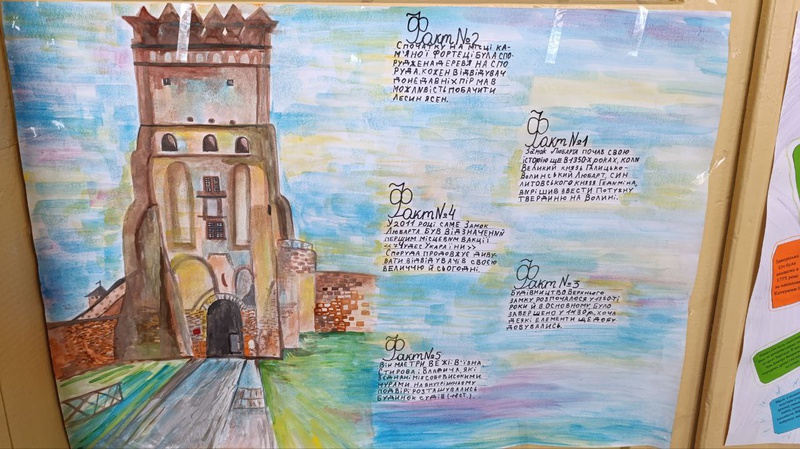 Факт №2
Спочатку на місці ка-
м'яної фортеці була спо-
руджена дерев'яна спо
руда. Кожен відвідувач
донедавніх пір мав
можливість побачити
Лесин ясен.
Факт №1
Замок Любарта почав свою
історію ще в 1350-х роках, коли
Великий князь Галицько-
Волинський Любарт, син
литовського князя Гедиміна,
вирішив звести потужну
твердиню на Волині.
Факт №4
У 2011 році саме Замок
Любарта був відзначений
першим місцем в акції
<<7 чудес України>>
Споруда продовжує диву-
вати відвідувачів своєю
величчю й сьогодні.
Факт №3
Будівництво Верхнього
замку розпочалося у 1350-ті
роки й в основному було
завершено у 1430 р., хоча
деякі елементи ще добу
довувались.
Факт №5
Він має три вежі-В'їзна,
Стирова, Владича, які
з'єднані між собою високими
мурами. На внутрішньому
подвір'ї розташувались
будинок судів (18 ст.).